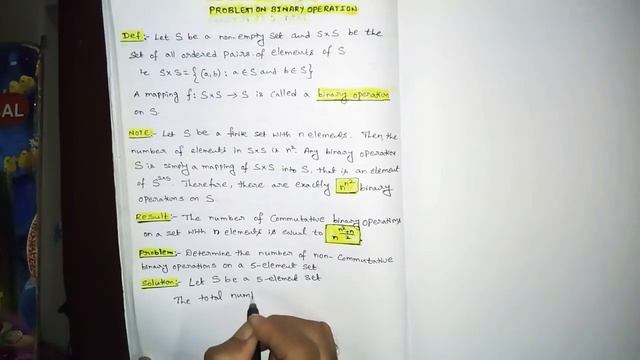 PROBLEM ON BINARY OPERATION
Def:- Let S be a non-empty set and S×S be the
set of all ordered pairs of elements of S
ie S×S = {(a,b) : a∈S and b∈S}
A mapping f: S×S → S is called a binary operation
on S.
NOTE:- Let S be a finite set with n elements. Then the
number of elements in S×S is n². Any binary operation
S is simply a mapping of S×S into S, that is an element
of S^{S×S}. Therefore, there are exactly n^{n²} binary
operations on S.
Result:- The number of Commutative binary operations
on a set with n elements is equal to n^{(n²+n)/2}.
Problem:- Determine the number of non-commutative
binary operations on a 5-element set.
Solution:- Let S be a 5-element set
The total num
AL